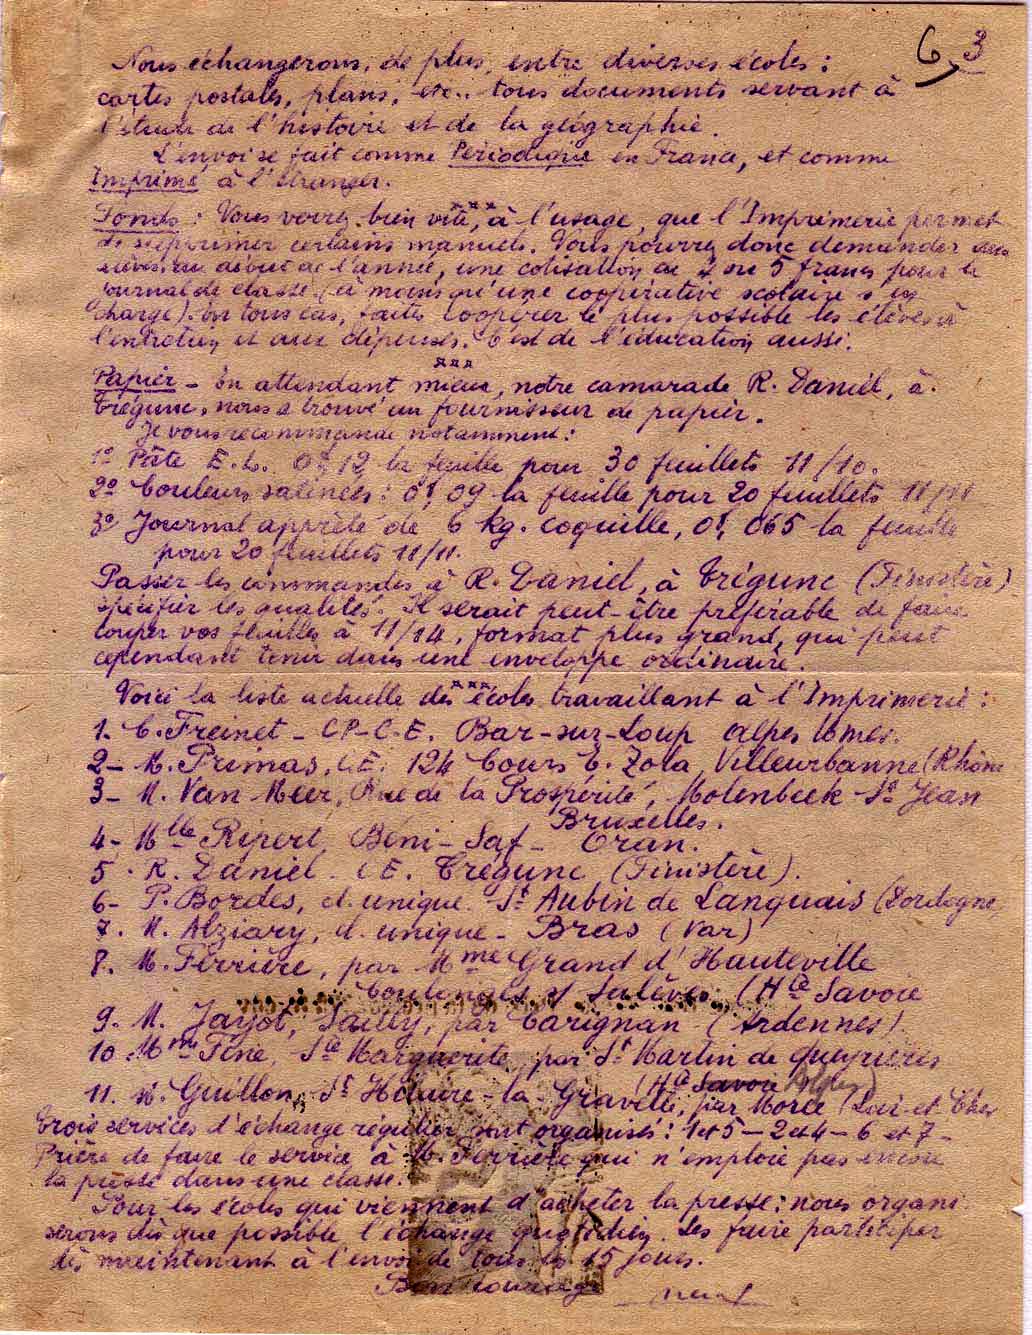 6, 3
Nous échangerons, de plus, entre diverses écoles :
cartes postales, plans, etc.. tous documents servant à
l'étude de l'histoire et de la géographie.
L'envoi se fait comme Périodique en France, et comme
Imprimé à l'étranger.
***
Fonds : Vous verrez bien vite, à l'usage, que l'Imprimerie permet
de supprimer certains manuels. Vous pourrez donc demander aux
élèves, au début de l'année, une cotisation de ou 5 francs pour le
journal de classe (à moins qu'une coopérative scolaire s'en
charge). En tous cas, faites coopérer le plus possible les élèves à
l'entretien et aux dépenses. C'est de l'éducation aussi.
***
Papier - En attendant mieux, notre camarade R. Daniel, à
Trégunc, nous a trouvé un fournisseur de papier.
Je vous recommande notamment :
1º Pâte E.L. 0f,12 la feuille pour 30 feuillets 11/10.
2º Couleurs satinées : 0f,09 la feuille pour 20 feuillets 11/11
3º Journal apprêté de 6 kg. coquille, 0f,065 la feuille
pour 20 feuillets 11/11.
Passer les commandes à R. Daniel, à Trégunc (Finistère)
spécifier les qualités. Il serait peut-être préférable de faire
couper vos feuilles à 11/14, format plus grand, qui peut
cependant tenir dans une enveloppe ordinaire.
***
Voici la liste actuelle des écoles travaillant à l'Imprimerie :
1. C. Freinet - CP-C.E. Bar-sur-Loup Alpes Mmes.
2- M. Primas, C.E. 124 Cours E. Zola Villeurbanne (Rhône
3- M. Van Meer, Rue de la Prospérité, Molenbeek-St Jean
Bruxelles.
4- Mlle Ripert, Béni-Saf- Oran.
5. R. Daniel. CE. Trégunc (Finistère).
6- P. Bordes, cl. unique. St Aubin de Lanquais (Dordogne
7. M. Alziary, cl. unique - Bras (Var)
8. M. Ferrière, par Mme Grand d'Hauteville
s/ Salève. (Hte Savoie
9. M. Jayot, Sailly, par Carignan (Ardennes).
10. Mme Fine, Ste Marguerite, par St Martin de Queyrières
(Hte Savoie
11. M. Guillon, St Hilaire-la-Gravelle, par Morée (Loir-et-Cher
Trois services d'échange régulier sont organisés : 1 et 5 - 2 et 4 - 6 et 7 -
Prière de faire le service à M. Ferrière qui n'emploie pas encore
la presse dans une classe.
Pour les écoles qui viennent d'acheter la presse : nous organi-
serons dès que possible l'échange quotidien. Les faire participer
dès maintenant à l'envoi de tous les 15 jours.
Bon courage